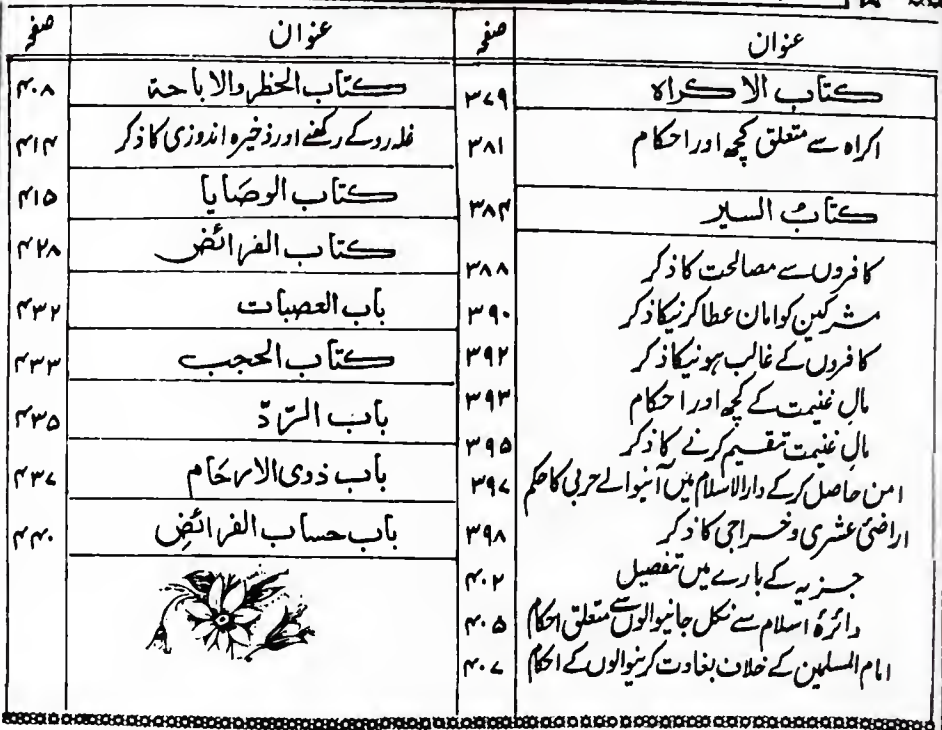 عنوان صفحہ
كتاب الاكراه ۳۷۹
اکراہ سے متعلق کچھ اور احکام ۳۸۱
كتابُ السير ۳۸۴
کافروں سے مصالحت کا ذکر ۳۸۸
مشرکین کو امان عطا کرنیکا ذکر ۳۹۰
کافروں کے غالب ہونیکا ذکر ۳۹۲
مالِ غنیمت کے کچھ اور احکام ۳۹۳
مالِ غنیمت تقسیم کرنے کا ذکر ۳۹۵
امن حاصل کرکے دارالاسلام میں آنیوالے حربی کا حکم ۳۹۷
اراضیٔ عشری و خراجی کا ذکر ۳۹۸
جزیہ کے بارے میں تفصیل ۴۰۲
دائرۂ اسلام سے نکل جانیوالوں سے متعلق احکام ۴۰۵
امام المسلمین کے خلاف بغاوت کرنیوالوں کے احکام ۴۰۷
عنوان صفحہ
كتاب الحظر والاباحة ۴۰۸
غلہ روکے رکھنے اور ذخیرہ اندوزی کا ذکر ۴۱۴
كتاب الوصَايا ۴۱۵
كتاب الفرائض ۴۲۸
باب العصبات ۴۳۲
كتاب الحجب ۴۳۳
باب الرّدّ ۴۳۵
باب ذوی الارحَام ۴۳۷
باب حساب الفرائضِ ۴۴۰